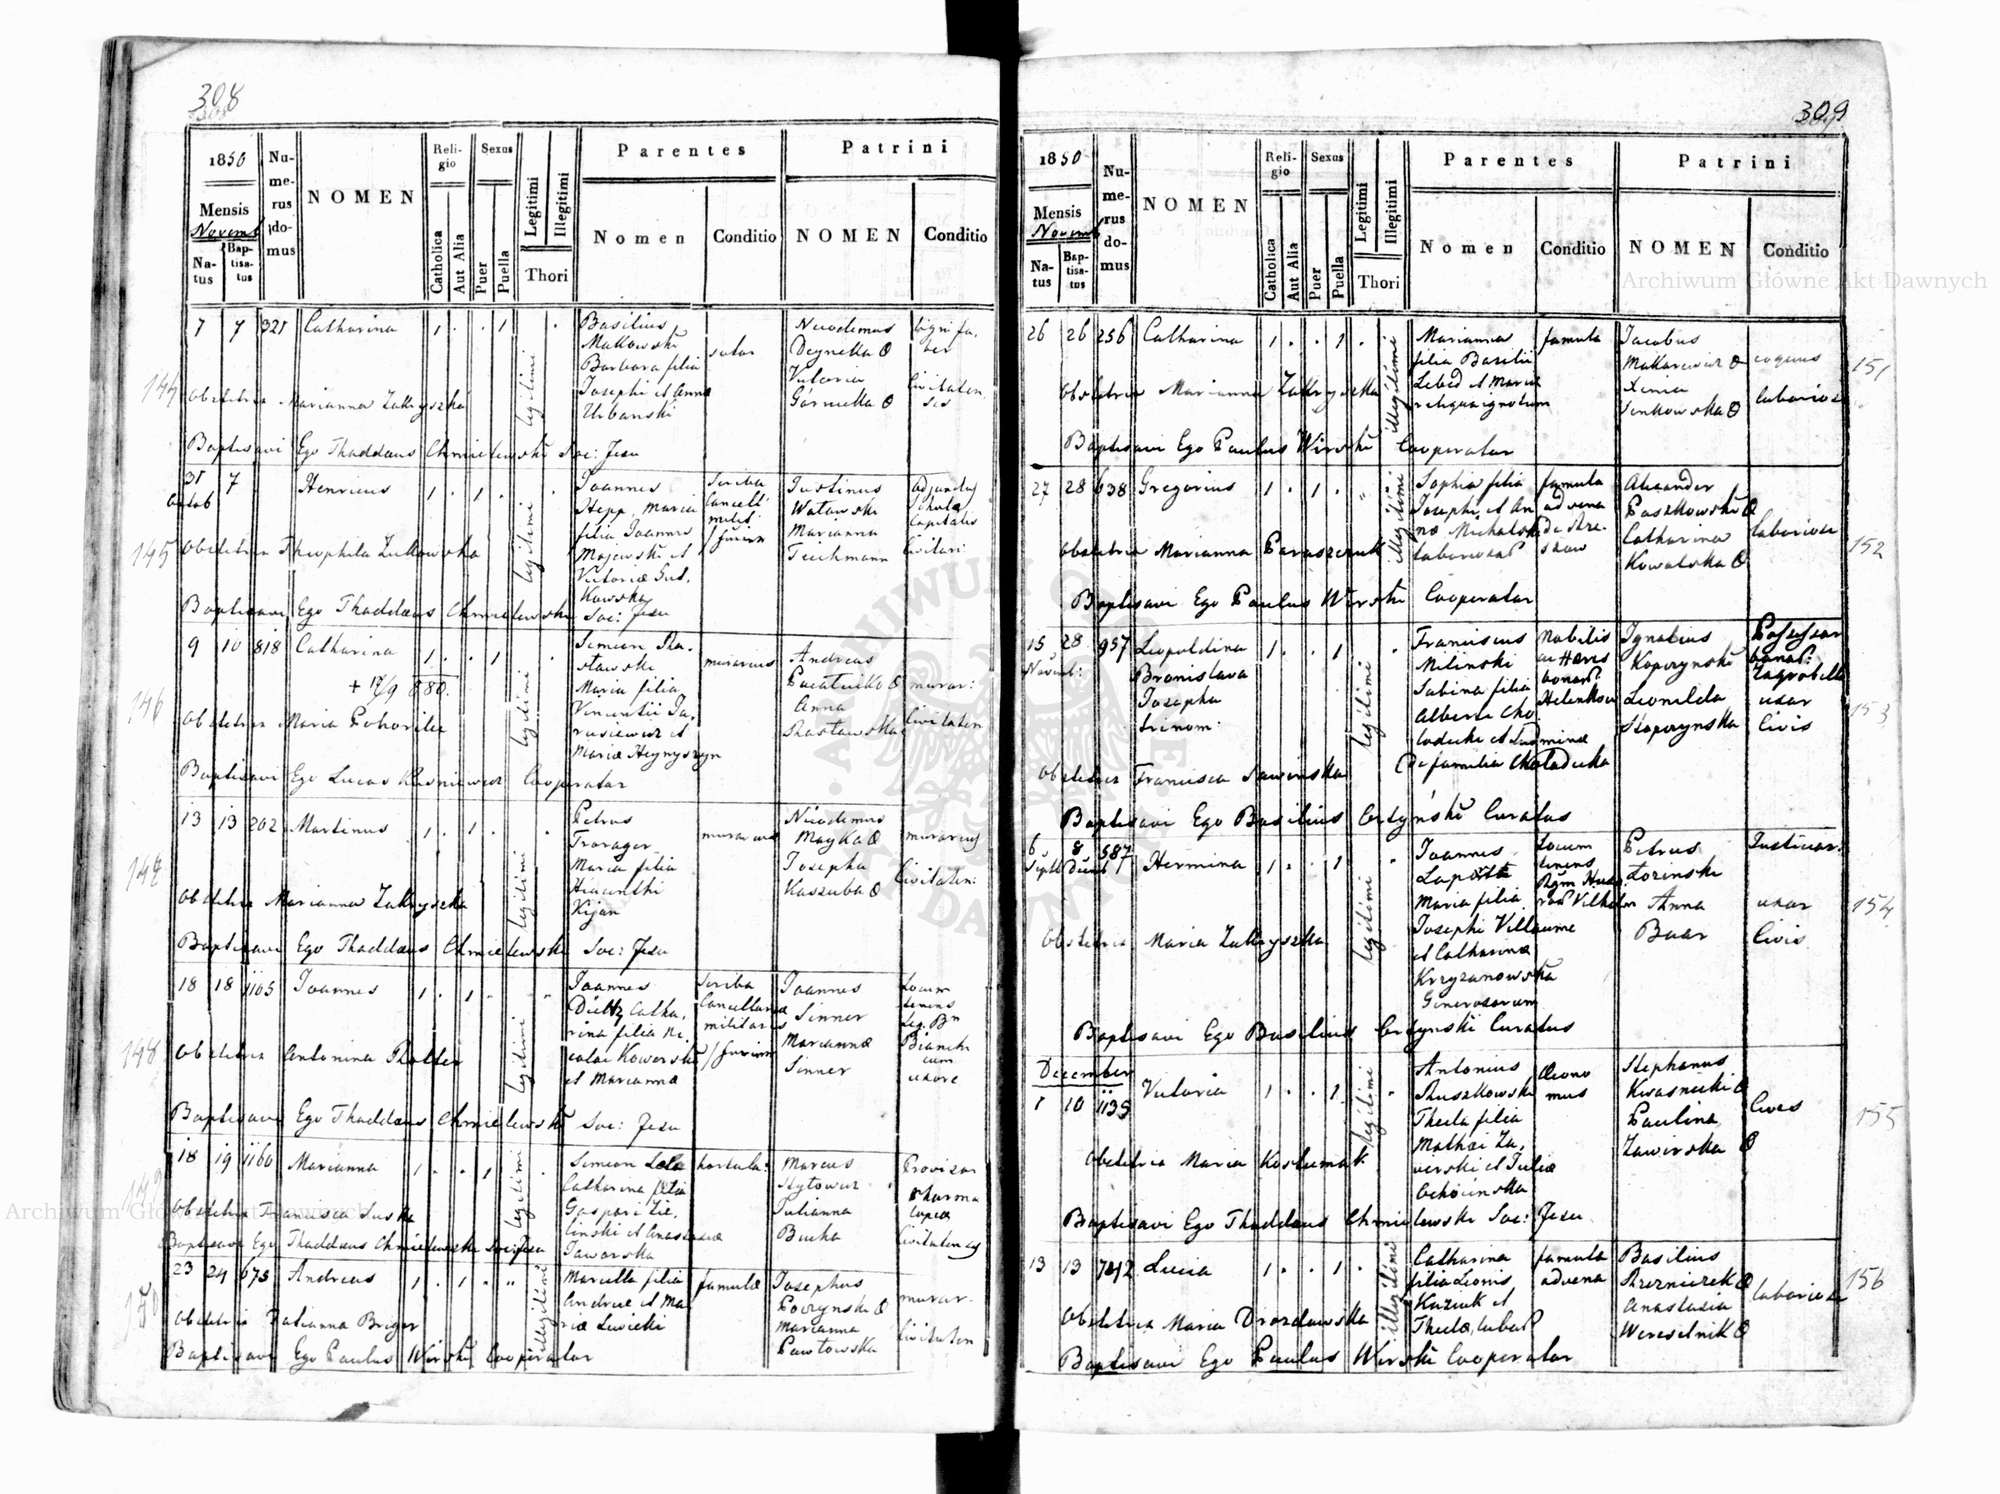 308
1850
Mensis
Novemb
Na-
tus
Bap-
tisa-
tus
Nu-
me-
rus
do-
mus
NOMEN
Reli-
gio
Catholica
Aut Alia
Sexus
Puer
Puella
Legitimi
Illegitimi
Thori
Parentes
Nomen
Conditio
Patrini
NOMEN
Conditio
7 7 321 Catharina 1 . . 1 .
legitimi
Basilius
Makowski
Barbara filia
Josephi et Annæ
Urbanski
sutor
Nicodemus
Deynekka
Victoria
Civitaten
ses
144
Obstetrix Marianna Zakryszka
Baptisavi Ego Thaddæus Chmielewski Soc: Jesu
31 7 Henricus 1 . 1 . .
Octob
legitimi
Joannes
Hepp, Maria
filia Joannis
Majewski et
Victoriæ Sut,
kowska
Scriba
Cancell:
milit:
Justinus
Watowski
Marianna
Teichmann
Adjunctus
Scholæ
Capitalis
145
Obstetrix Theophila Zutkowska
Baptisavi Ego Thaddæus Chmielewski Soc: Jesu
9 10 818 Catharina 1 . . 1 .
+ 17/9 880.
legitimi
Simeon Sta-
stawski
Maria filia
Vincentii Ja-
rusiewicz et
Mariæ
murarius
Andreas
Anna
murar:
Civitaten
146
Obstetrix Maria Pohorilec
Baptisavi Ego Lucas Cooperator
13 13 202 Martinus 1 . 1 . .
legitimi
Petrus
Maria filia
Hiacinthi
Kijan
murarius
Nicodemus
Mayka
Josepha
Kaszuba
murarius
Civitaten:
147
Obstetrix Marianna Zakryszka
Baptisavi Ego Thaddæus Chmielewski Soc: Jesu
18 18 1105 Joannes 1 . 1 .
legitimi
Joannes
Dietz Catha,
rina filia Ni,
colai Kowerski
et Marianna
Scriba
Cancellariæ
militaris
Joannes
Sinner
Marianna
Sinner
Locum
tenens
Leg. Bn
Bianchi
cum
uxore
148
Obstetrix Antonina
Baptisavi Ego Thaddæus Chmielewski Soc: Jesu
18 19 1160 Marianna 1 . . 1 .
legitimi
Simeon
Catharina filia
Gaspari Zie,
linski et Anastasiæ
Jaworska
hortula:
Marcus
Hytowicz
Julianna
Bucka
Provisor
Pharma
copeæ
Civitatenses
149
Obstetrix Francisca
Baptisavi Ego Thaddæus Chmielewski Soc: Jesu
23 24 673 Andreas 1 . 1 . "
illegitimi
Marcella filia
Andreæ et Ma
riæ Lewicki
famula
Josephus
Marianna
Pawtowska
murar.
Civitaten
150
Obstetrix Tatianna Briger
Baptisavi Ego Paulus Wirski Cooperator
309
1850
Mensis
Novemb
Na-
tus
Bap-
tisa-
tus
Nu-
me-
rus
do-
mus
NOMEN
Reli-
gio
Catholica
Aut Alia
Sexus
Puer
Puella
Legitimi
Illegitimi
Thori
Parentes
Nomen
Conditio
Patrini
NOMEN
Conditio
26 26 256 Catharina 1 . . 1 .
illegitimi
Marianna
filia Basilii
Lebed et Mariæ
reliqua ignotum
famula
Jacobus
Makarewicz
Xenia
Senkowska
coquus
laboriosa
151
Obstetrix Marianna Zakryszka
Baptisavi Ego Paulus Wirski Cooperator
27 28 638 Gregorius 1 . 1 . "
illegitimi
Sophia filia
Josephi et An
næ
famula
advena
Alexander
Paszkowski
Catharina
Kowalska
laboriosi
152
Obstetrix Marianna Paraszczuk
Baptisavi Ego Paulus Wirski Cooperator
15 28 957 Leopoldina 1 . . 1 .
Novemb:
Bronislava
Josepha
trinom:
legitimi
Franciscus
Milinski
Sabina filia
Alberti Cho
lodecki et Ludminæ
(de familia Chotodecka
Nobilis
ac Heres
bonor:
Ignatius
Koporynski
Leonilda
Koporynska
Possessor
bonor:
Zagrobella
uxor
Civis
153
Obstetrix Francisca Sawinska
Baptisavi Ego Basilius Curatus
6 8 587 Hermina 1 . . 1 "
Septb Decemb
legitimi
Joannes
Maria filia
Josephi Villaume
et Catharinæ
Krzyzanowska
Generosorum
Locum
tenens
Petrus
Lozinski
Anna
Baar
Justiciar.
uxor
Civis
154
Obstetrix Maria Zakryszka
Baptisavi Ego Basilius Curatus
December
1 10 1135 Victoria 1 . . 1 .
legitimi
Antonius
Ruszkowski
Thecla filia
Mathæi Za,
werski et Juliæ
Ochocinska
Œcono
mus
Stephanus
Kwasnicki
Paulina
Zawirska
Cives
155
Obstetrix Maria
Baptisavi Ego Thaddæus Chmielewski Soc: Jesu
13 13 742 Lucia 1 . . 1 .
illegitimi
Catharina
filia Leonis
Kuziuk et
Theclæ, labor
famula
advena
Basilius
Anastasia
laboriosi
156
Obstetrix Maria Drozdowska
Baptisavi Ego Paulus Wirski Cooperator
Archiwum Główne Akt Dawnych
Archiwum Główne Akt Dawnych
ARCHIWUM GŁÓWNE AKT DAWNYCH